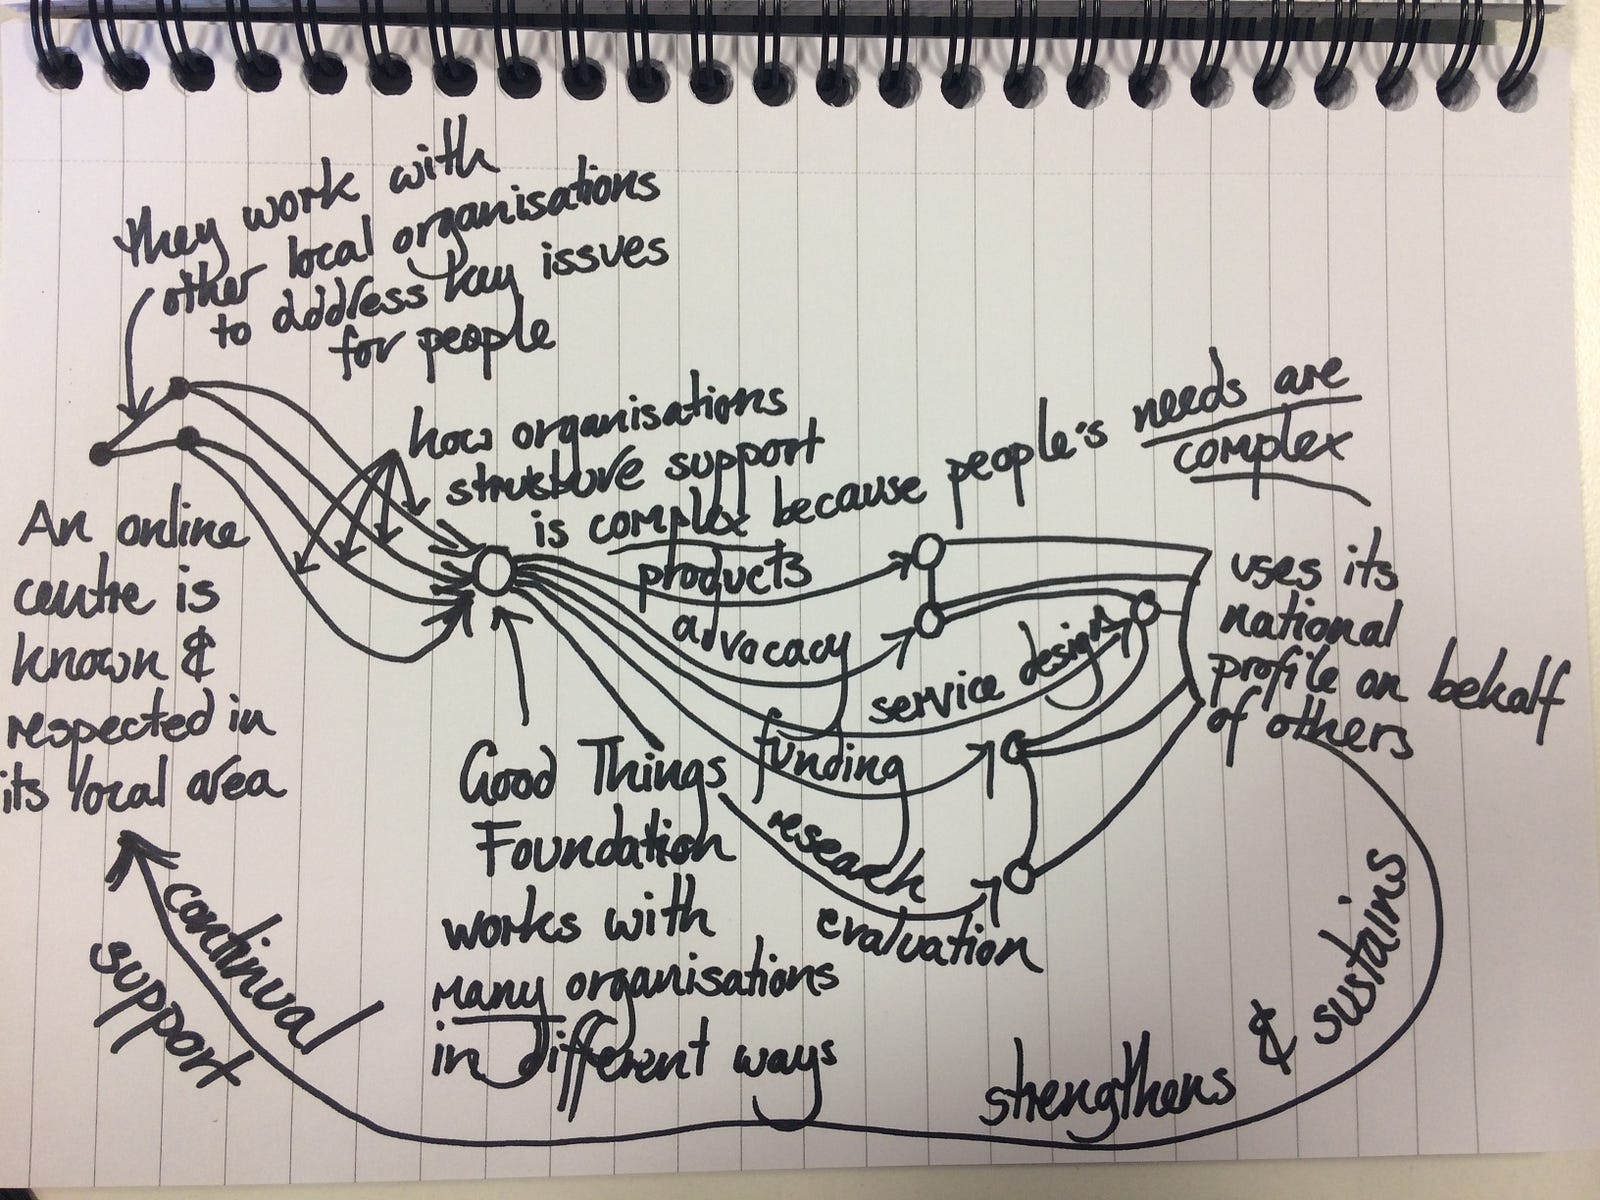 they work with
other local organisations
to adddress key issues
for people
how organisations
structure support
is complex because people's needs are
complex
An online
centre is
known &
respected in
its local area
products
advocacy
service design
funding
research
evaluation
uses its
national
profile on behalf
of others
Good Things
Foundation
works with
many organisations
in different ways
strengthens & sustains
continual
support